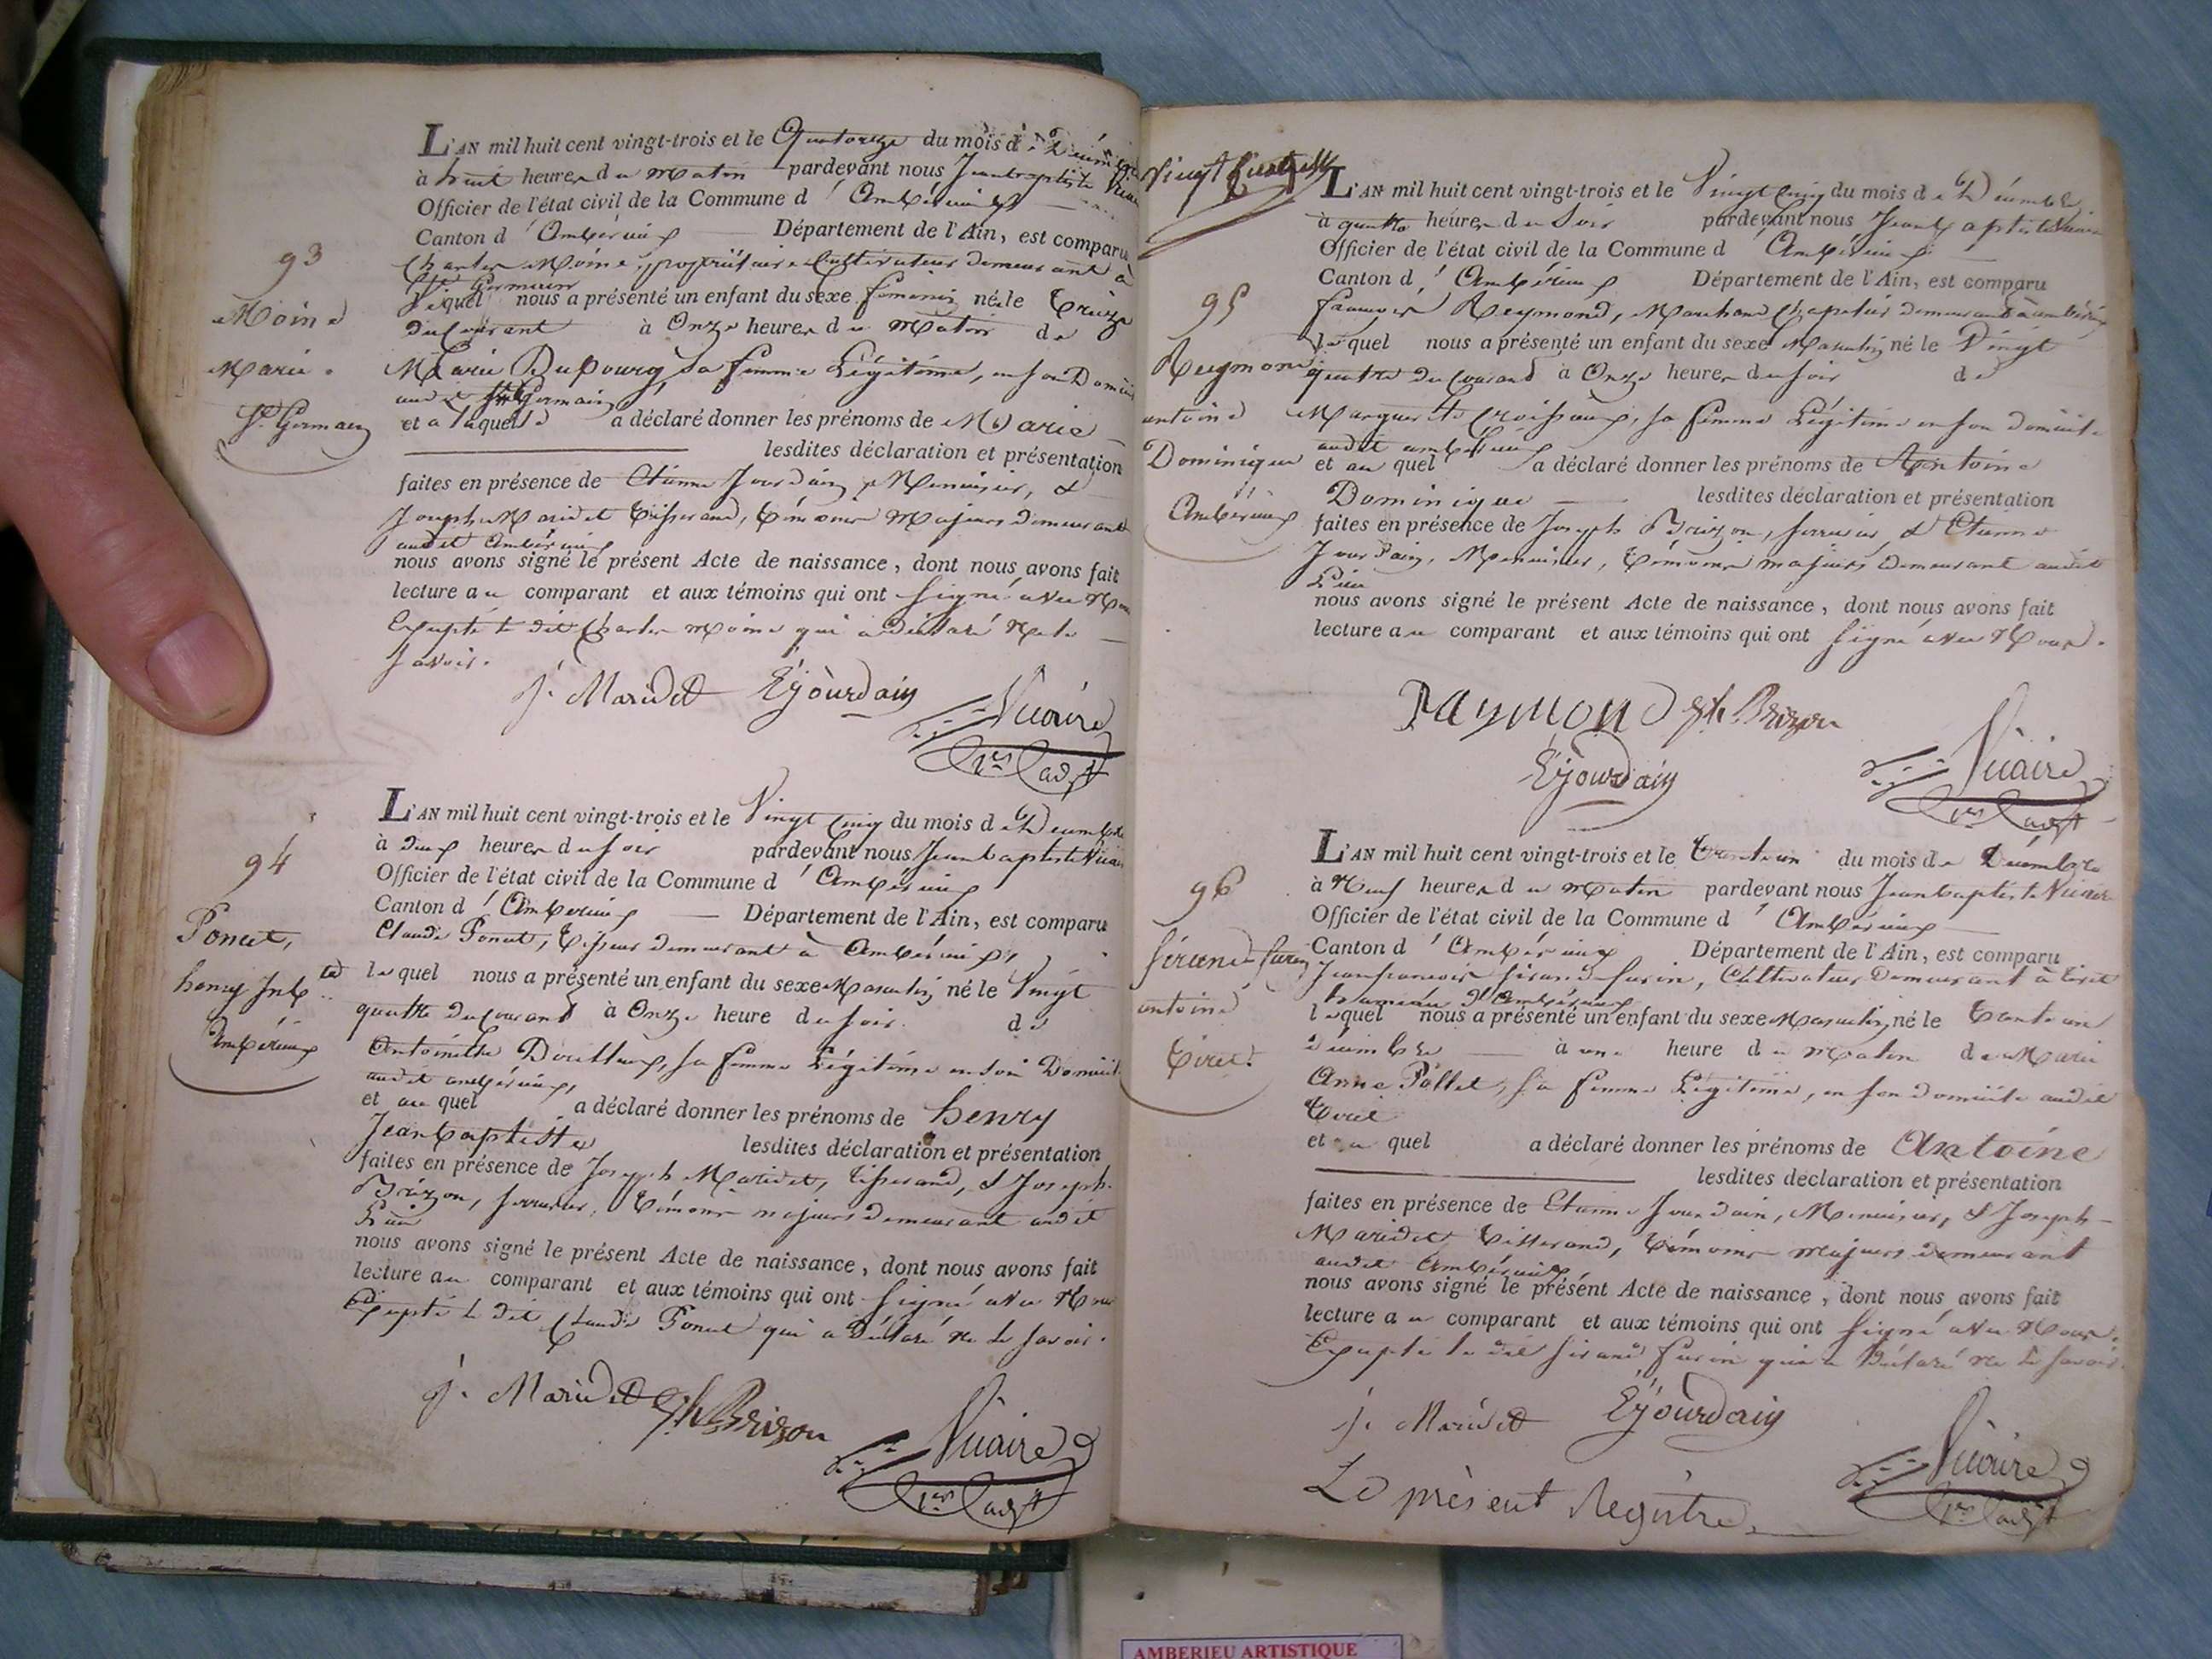 93
Moine
Marie
St Germain
L'AN mil huit cent vingt-trois et le Quatorze du mois de Décembre
à huit heures du matin pardevant nous Jeanbaptiste Vicaire
Officier de l'état civil de la Commune d'Ambérieux
Canton d'Ambérieux Département de l'Ain, est comparu
Charles Moine, propriétaire Cultivateur demeurant à
St Germain
lequel nous a présenté un enfant du sexe féminin né le treize
du Courant à Onze heures du Matin de
Marie Dufourg sa femme Légitime, en son Domicile
audit St Germain
et a laquelle a déclaré donner les prénoms de Marie
lesdites déclaration et présentation
faites en présence de Etienne Jourdain, Menuisier, &
Joseph Maridet tisserand, témoins Majeurs demeurant
audit Ambérieux
nous avons signé le présent Acte de naissance, dont nous avons fait
lecture au comparant et aux témoins qui ont signé avec Nous
Excepté le dit Charles Moine qui a déclaré Ne le
savoir.
J. Maridet EJourdain
Vicaire
1er adjt
94
Poncet,
henry Jn Bte
Ambérieux
L'AN mil huit cent vingt-trois et le Vingt Cinq du mois de Décembre
à deux heures du soir pardevant nous Jeanbaptiste Vicaire
Officier de l'état civil de la Commune d'Ambérieux
Canton d'Ambérieux Département de l'Ain, est comparu
Claude Poncet, tisseur demeurant à Ambérieux,
lequel nous a présenté un enfant du sexe Masculin né le Vingt
quatre du Courant à Onze heure du soir de
Antoinette Douillux, sa femme Légitime en son Domicile
audit ambérieux,
et au quel a déclaré donner les prénoms de henry
Jeanbaptiste lesdites déclaration et présentation
faites en présence de Joseph Maridet, tisserand, & Joseph
Brizon, serrurier, témoins majeurs demeurant audit
Lieu
nous avons signé le présent Acte de naissance, dont nous avons fait
lecture au comparant et aux témoins qui ont signé avec Nous
Excepté le dit Claude Poncet qui a Déclaré ne le savoir.
J. Maridet Jh Brizon
Vicaire
1er adjt
Vingt quatre
95
Reymond
antoine
Dominique
Ambérieux
L'AN mil huit cent vingt-trois et le Vingt Cinq du mois de Décembre
à quatre heures du Soir pardevant nous Jeanbaptiste Vicaire
Officier de l'état civil de la Commune d'Ambérieux
Canton d'Ambérieux Département de l'Ain, est comparu
francois Reymond, Marchand Chapelier demeurant à ambérieux
lequel nous a présenté un enfant du sexe Masculin né le Vingt
quatre du Courant à Onze heures du soir de
Marguerite Croissoux, sa femme Légitime en son domicile
audit ambérieux
et au quel a déclaré donner les prénoms de Antoine
Dominique lesdites déclaration et présentation
faites en présence de Joseph Brizon, serrurier & Etienne
Jourdain, Menuisier, témoins majeurs demeurant audit
Lieu
nous avons signé le présent Acte de naissance, dont nous avons fait
lecture au comparant et aux témoins qui ont signé avec Nous.
RAyMOND Jh Brizon
EJourdain
Vicaire
1er adjt
96
antoine
tiret
L'AN mil huit cent vingt-trois et le trente un du mois de Décembre
à Neuf heures du matin pardevant nous Jeanbaptiste Vicaire
Officier de l'état civil de la Commune d'Ambérieux
Canton d'Ambérieux Département de l'Ain, est comparu
Jeanfrancois furin, Cultivateur Demeurant à tiret
hameau d'Ambérieux
lequel nous a présenté un enfant du sexe Masculin, né le trente un
décembre à une heure du matin de Marie
Anne Pollet, sa femme Légitime, en son domicile audit
tiret
et au quel a déclaré donner les prénoms de Antoine
lesdites déclaration et présentation
faites en présence de Etienne Jourdain, Menuisier, & Joseph
Maridet tisserand, témoins majeurs demeurant
audit Ambérieux,
nous avons signé le présent Acte de naissance, dont nous avons fait
lecture au comparant et aux témoins qui ont signé avec Nous.
Excepté le dit furin qui a Déclaré ne le savoir.
J. Maridet EJourdain
Vicaire
1er adjt
Le présent Registre
AMBERIEU ARTISTIQUE